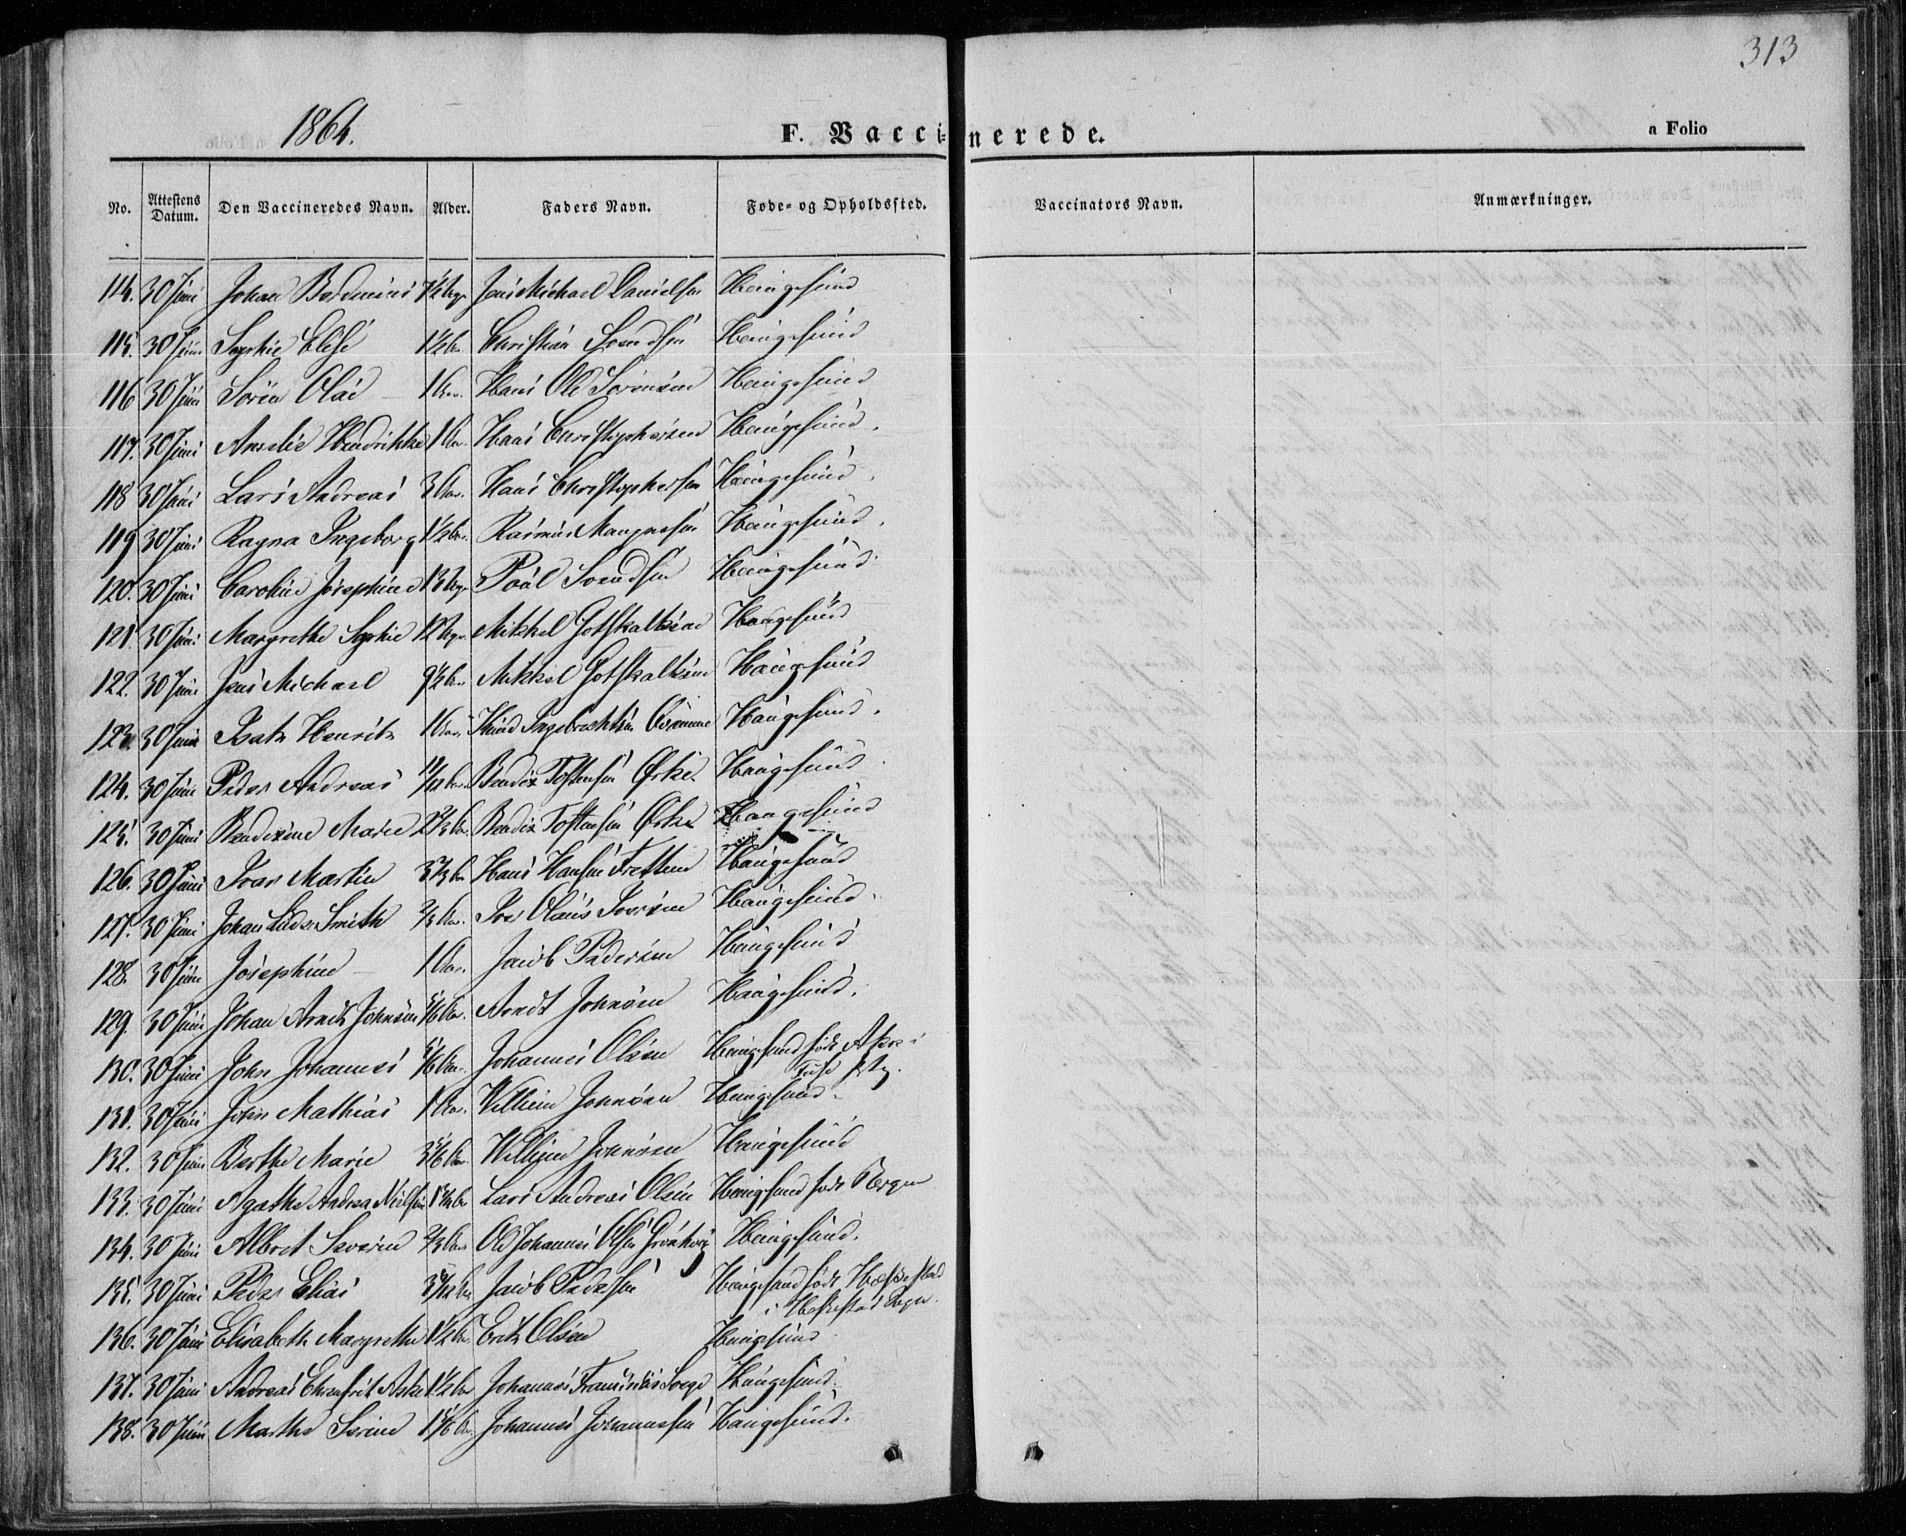 313
1864.
F. Vaccinerede.
a Folio
No. Attestens Datum. Den Vaccineredes Navn. Alder. Faders Navn. Føde- og Opholdssted. Vaccinators Navn. Anmærkninger.
114. 30 Juni Johan Jens Michael Danielsen Haugesund
115. 30 Juni Sophie Elise 1 1/2 Aar Christian Svendsen Haugesund
116 30 Juni Sören Olai 1 Aar. Hans Ole Sörensen Haugesund
117. 30 Juni Amalie Hendrikke 1 Aar. Hans Christophersen Haugesund.
118 30 Juni Lars Andreas 3 Aar. Hans Christophersen Haugesund.
119 30 Juni Ragna Ingeborg 1 1/2 Aar. Rasmus Magnesen Haugesund.
120. 30 Juni Caroline Josephine 13 Uger Poul Svendsen Haugesund.
121. 30 Juni Margrethe Sophie 12 Uger. Mikkel Gotskalksen Haugesund
122. 30 Juni Jens Michael 9 1/2 Aar Mikkel Gotskalksen Haugesund
123. 30 Juni Isak Henrik 1 Aar. Knud Ingebrechtsen Haugesund.
124. 30 Juni Peder Andreas Bendix Tostensen Ørke. Haugesund
125. 30 Juni Bendixine Marie 2 2/3 Aar. Bendix Tostensen Ørke Haugesund
126. 30 Juni Ivar Martin Hans Hansen Haugesund
127. 30 Juni Johan Lüder Smith 2/3 Aar. Olaus Haugesund.
128. 30 Juni Josephine 1 Aar. Jacob Pedersen Haugesund
129. 30 Juni Johan Arndt Johnsen 5/6 Aar. Arndt Johnsen Haugesund.
130. 30 Juni John Johannes 5/6 Aar. Johannes Olsen Haugesund født i
Fuse
131. 30 Juni John Mathias 1 Aar. Villum Johnsen Haugesund.
132. 30 Juni Berthe Marie 3 5/6 Aar. Johnsen Haugesund
133. 30 Juni Agathe Andrea Nielsine Lars Andreas Olsen Haugesund født Bergen
134. 30 Juni Albert Severin 2/3 Aar Ole Johannes Olsen Haugesund.
135. 30 Juni Peder Elias Jacob Pedersen Haugesund født
i
136. 30 Juni Elisabeth Margrethe 1 1/2 Aar Erik Olsen Haugesund
137. 30 Juni Andreas Ehrenfrit 1 1/2 Aar Johannes Haugesund.
138. 30 Juni Marthe Serine 1 5/6 Aar. Johannes Johannessen Haugesund.